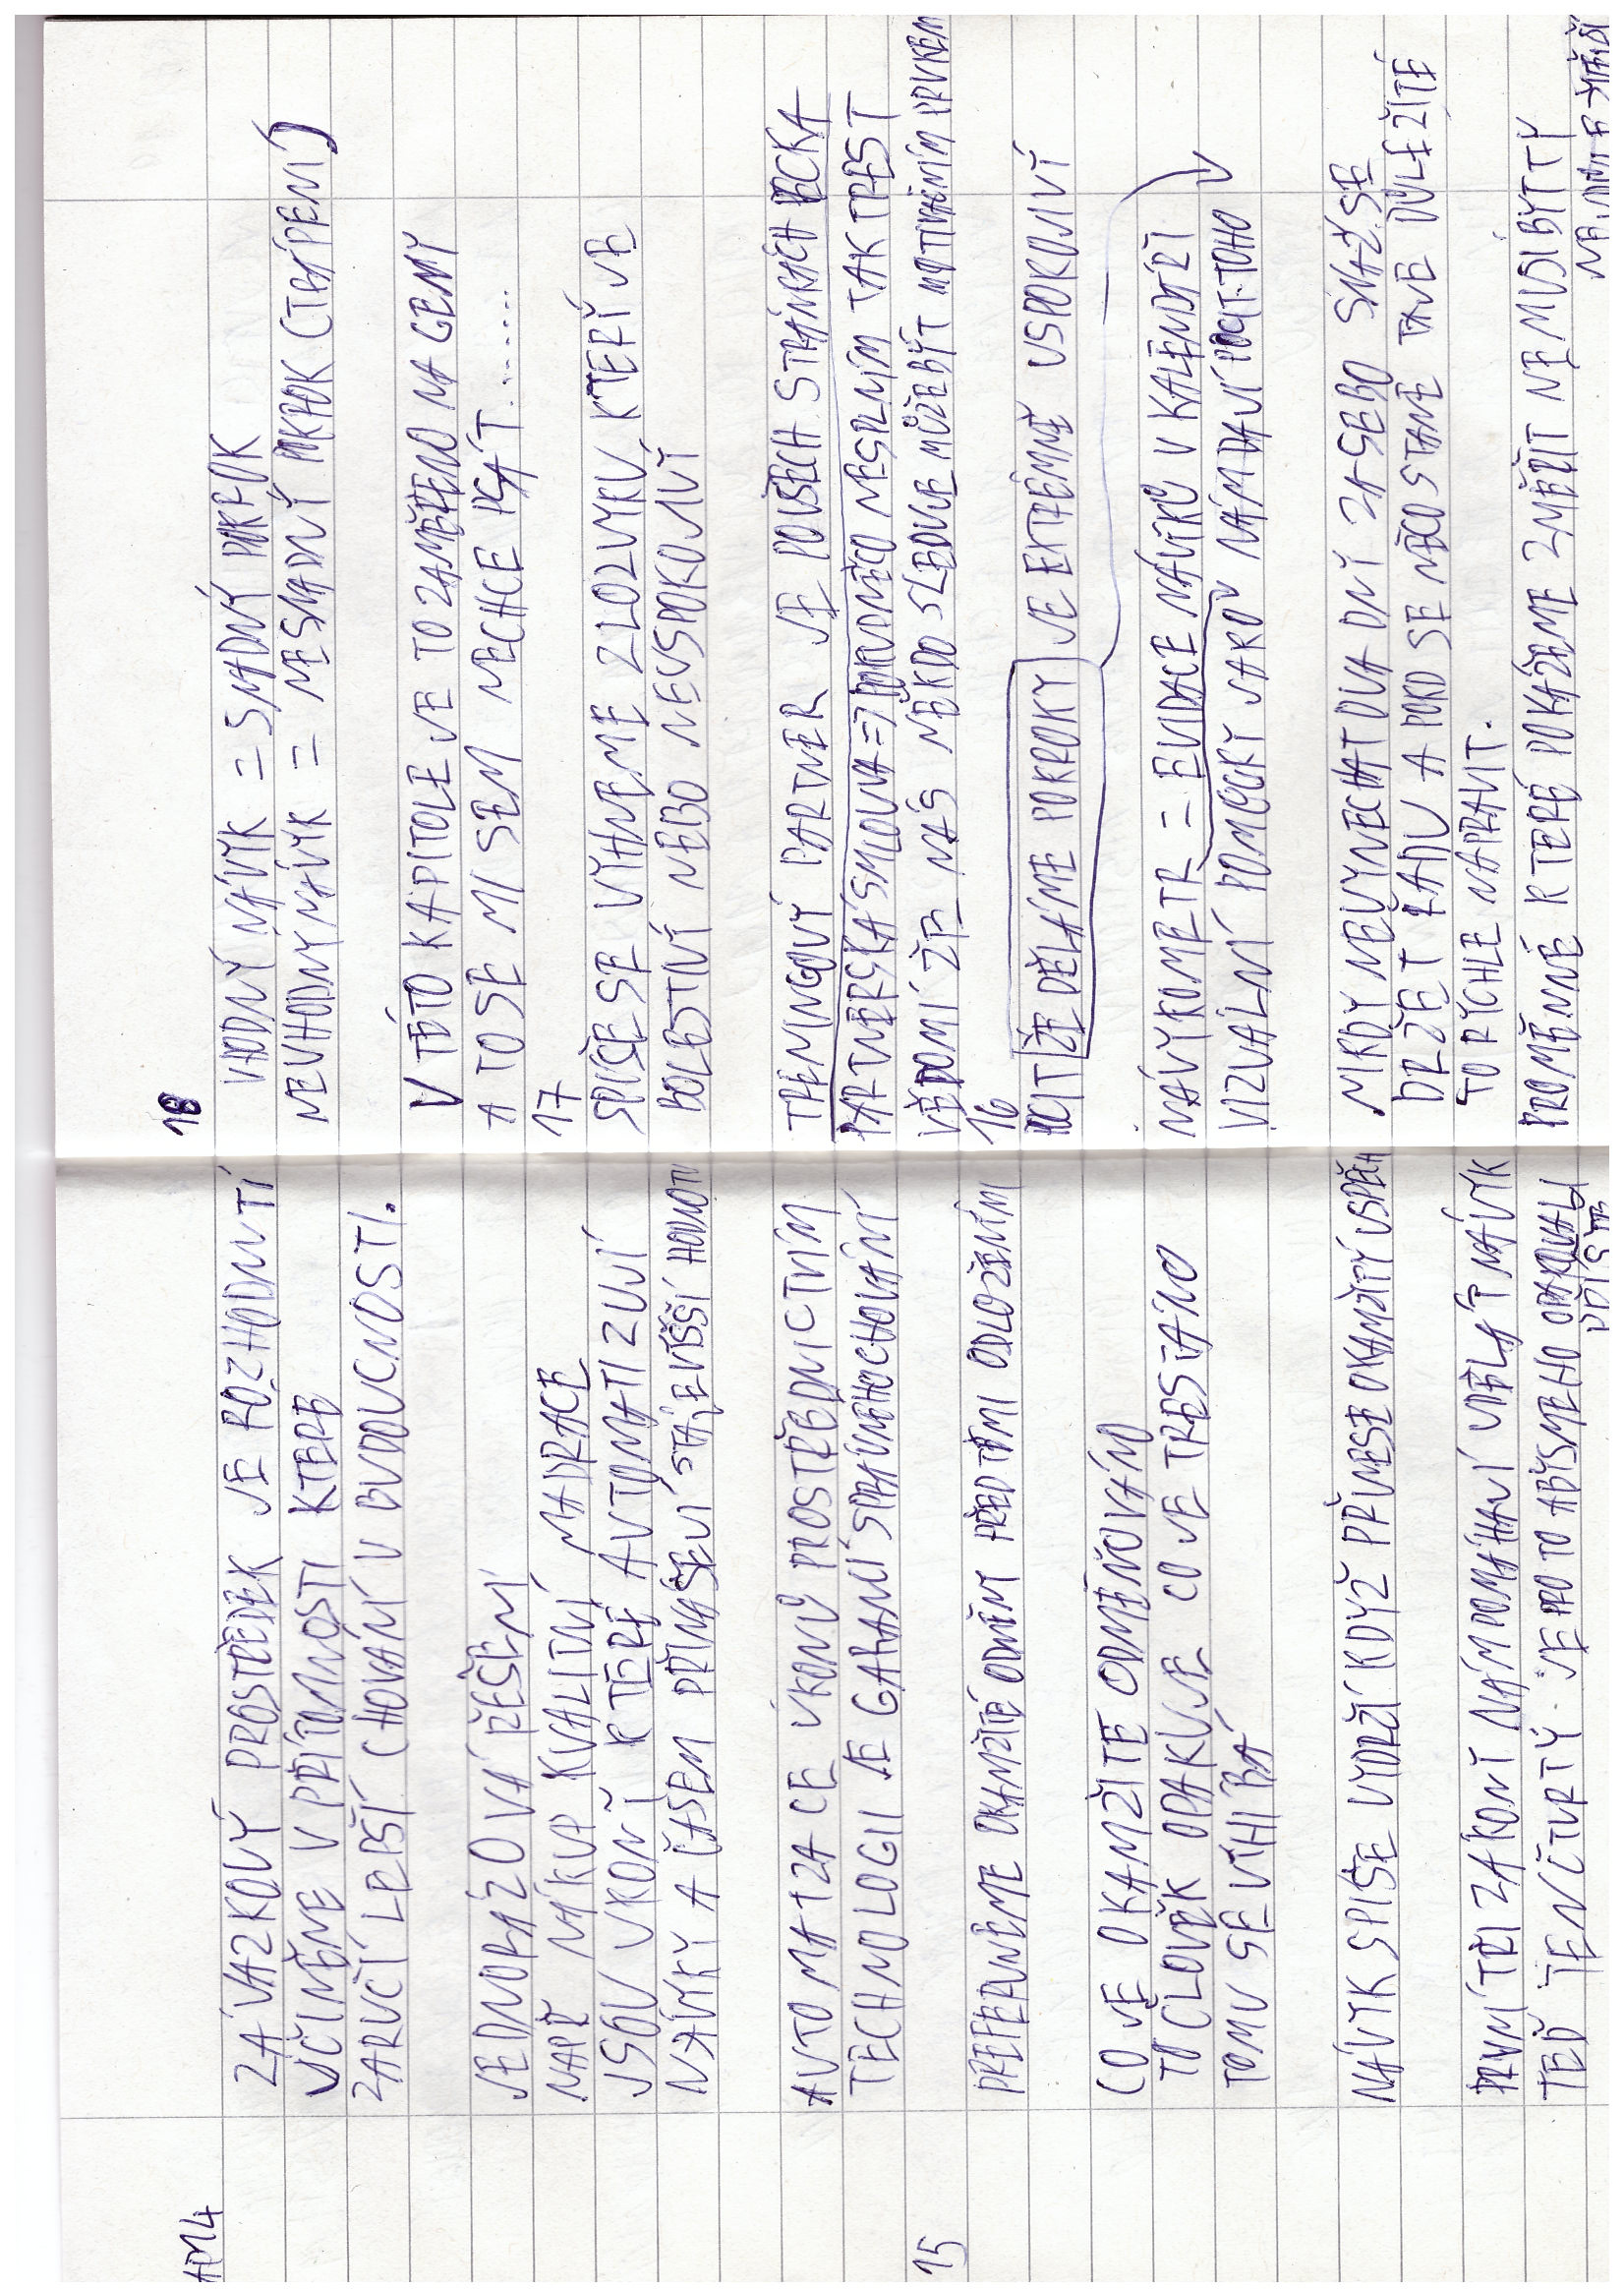 14
ZÁVAZKOVÝ PROSTŘEDEK JE ROZHODNUTÍ
UČINĚNE V PŘÍTOMNOSTI KTERÉ
ZARUČÍ LEPŠÍ CHOVÁNÍ V BUDOUCNOSTI.
JEDNORÁZOVÁ ŘEŠENÍ
NAPŘ NÁKUP KVALITNÍ MADRACE
JSOU ÚKONY KTERÉ AUTOMATIZUJÍ
NÁVYKY A ČASEM PŘINÁŠEJÍ STÁLE VÍŠŠÍ HODNOTU
AUTOMATIZACE ÚKONŮ PROSTŘEDNICTVÍM
TECHNOLOGII JE GARANCÍ SPRÁVNÉHO CHOVÁNÍ
15
PREFERUJEME OKAMŽITÉ ODMĚNY PŘED TĚMI ODLOŽENÍMI
CO JE OKAMŽITE ODMĚŇOVÁNO
TO ČLOVĚK OPAKUJE CO JE TRESTÁNO
TOMU SE VÍHÍBÁ
NÁVYK SPÍŠE VYDRŽÍ KDYŽ PŘINESE OKAMŽITÝ USPĚCH
PRVNÍ TŘI ZÁKONY NÁM POMÁHAJÍ UDĚLAT NÁVYK
TEĎ TEN ČTVRTÝ JE PRO TO ABYSME HO OPAKOVALI
PŘÍŠTĚ
18
VHODNÝ NÁVYK = SNADNÝ POKROK
NEVHODNÝ NÁVYK = NESNADNÝ POKROK (TRÁPENÍ)
V TÉTO KAPITOLE JE TO ZAMĚŘENO NA GENY
A TO SE MI SEM NECHCE PSÁT........
17
SPÍŠE SE VYHNEME ZLOZVYKU KTERÝ JE
BOLESTNÝ NEBO NEUSPOKOJIVÝ
TRÉNINGOVÝ PARTNER JE PO VŠECH STRÁNKÁCH PECKA
PARTNERSKÁ SMLOUVA => POKUD NĚCO NESPLNÍM TAK TREST
VĚDOMÍ ŽE NÁS NĚKDO SLEDUJE MŮŽE BÝT MOTIVAČNÍM PRVKEM
16
POCIT ŽE DĚLÁME POKROKY JE EXTRÉMNĚ USPOKOJIVÝ
NÁVYKOMETR = EVIDACE NÁVYKŮ V KALENDÁŘI
VIZUÁLNÍ POMŮCKY JAKO NÁM DAJÍ POCIT TOHO
NIKDY NEVYNECHAT DVA DNY ZA SEBO SNAŽ SE
DRŽET ŘADU A POKD SE NĚCO STANE TAJE DŮLEŽITÉ
TO RYCHLE NAPRAVIT.
PROMĚNNÉ KTERÉ POKÁŽEME ZMĚŘIT NEMUSÍ BÝT TY
NEJDŮLEŽITĚJŠÍ